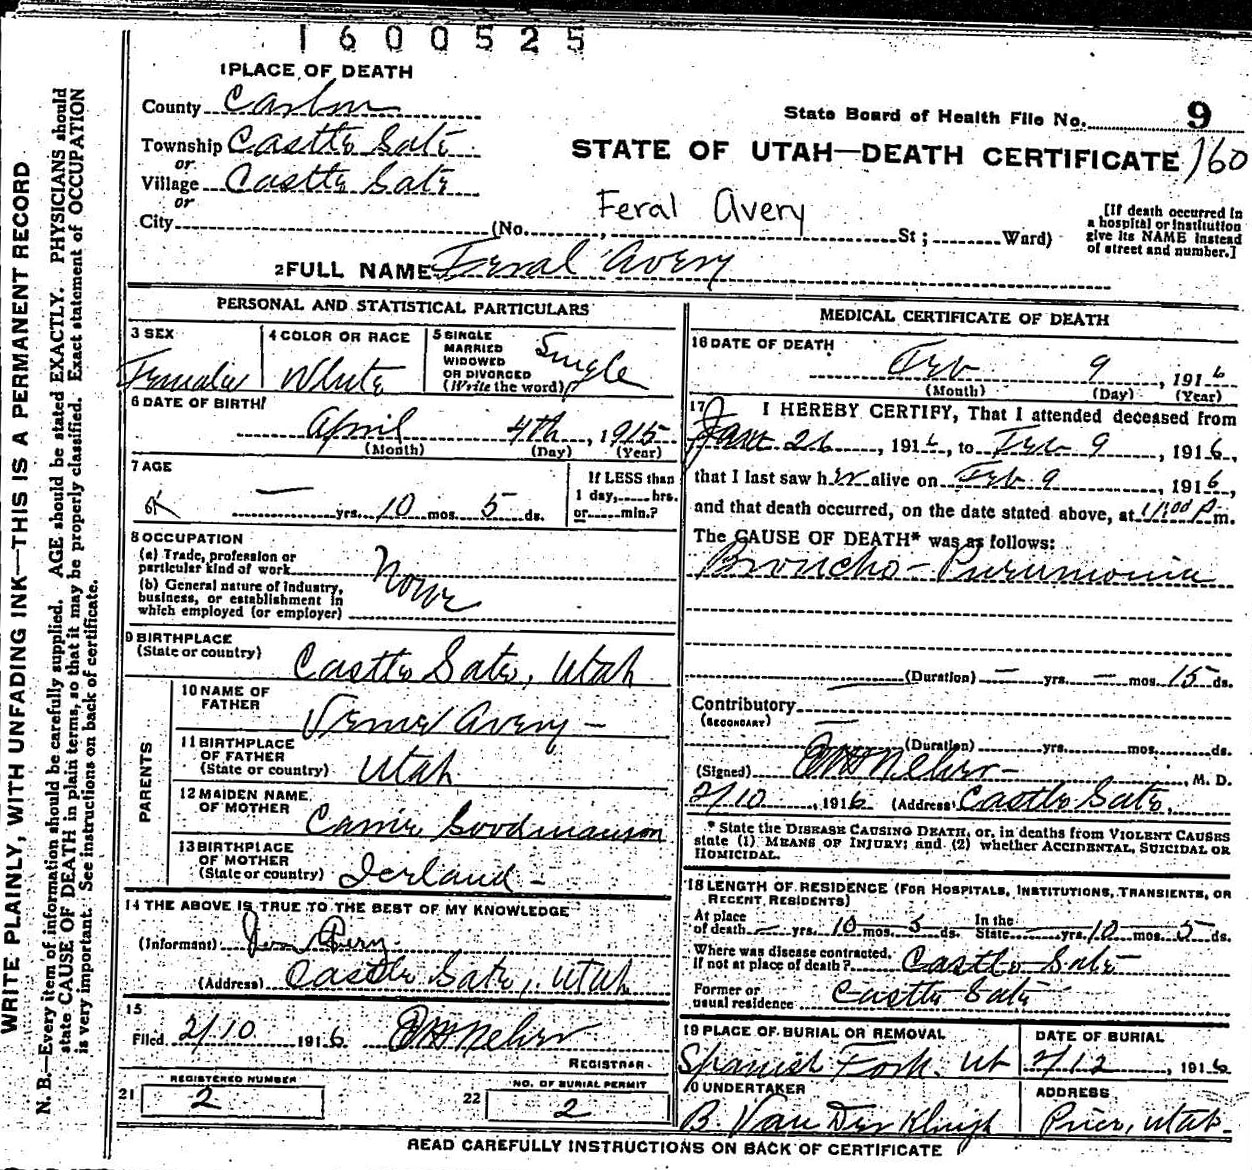 1600525
1 PLACE OF DEATH
County Carbon
State Board of Health File No. 9
Township Castle Gate
STATE OF UTAH—DEATH CERTIFICATE 160
or
Village Castle Gate
or
Feral Avery
City (No. St; Ward)
[If death occurred in
a hospital or institution
give its NAME instead
of street and number.]
2 FULL NAME Feral Avery
PERSONAL AND STATISTICAL PARTICULARS
3 SEX
Female
4 COLOR OR RACE
White
5 SINGLE
MARRIED
WIDOWED
OR DIVORCED
(Write the word)
Single
6 DATE OF BIRTH
April 4th, 1915
(Month) (Day) (Year)
7 AGE
— yrs. 10 mos. 5 ds.
If LESS than
1 day, hrs.
or min.?
8 OCCUPATION
(a) Trade, profession or
particular kind of work
(b) General nature of industry,
business, or establishment in
which employed (or employer)
None
9 BIRTHPLACE
(State or country)
Castle Gate, Utah
PARENTS
10 NAME OF
FATHER
Avery —
11 BIRTHPLACE
OF FATHER
(State or country) Utah
12 MAIDEN NAME
OF MOTHER
13 BIRTHPLACE
OF MOTHER
(State or country) Iceland —
14 THE ABOVE IS TRUE TO THE BEST OF MY KNOWLEDGE
(Informant)
(Address) Castle Gate, Utah
15
Filed 2/10 1916
REGISTRAR
REGISTERED NUMBER
21 2
NO. OF BURIAL PERMIT
22 2
MEDICAL CERTIFICATE OF DEATH
16 DATE OF DEATH
Feb 9, 1916
(Month) (Day) (Year)
17 I HEREBY CERTIFY, That I attended deceased from
Jan 26, 1916, to Feb 9, 1916,
that I last saw her alive on Feb 9, 1916,
and that death occurred, on the date stated above, at 11:00 P m.
The CAUSE OF DEATH* was as follows:
Broncho-Pneumonia
(Duration) — yrs. — mos. 15 ds.
Contributory
(SECONDARY)
—
(Duration) yrs. mos. ds.
(Signed) , M. D.
2/10, 1916 (Address) Castle Gate,
* State the DISEASE CAUSING DEATH, or, in deaths from VIOLENT CAUSES
state (1) MEANS OF INJURY; and (2) whether ACCIDENTAL, SUICIDAL OR
HOMICIDAL.
18 LENGTH OF RESIDENCE (FOR HOSPITALS, INSTITUTIONS, TRANSIENTS, OR
RECENT RESIDENTS)
At place
of death — yrs. 10 mos. 5 ds. In the
State — yrs. 10 mos. 5 ds.
Where was disease contracted.
If not at place of death? Castle Gate
Former or
usual residence Castle Gate
19 PLACE OF BURIAL OR REMOVAL
Spanish Fork. Ut
DATE OF BURIAL
2/12, 1916
20 UNDERTAKER
B. Van Der
ADDRESS
Price, Utah.
READ CAREFULLY INSTRUCTIONS ON BACK OF CERTIFICATE
WRITE PLAINLY, WITH UNFADING INK—THIS IS A PERMANENT RECORD
N. B.—Every item of information should be carefully supplied. AGE should be stated EXACTLY. PHYSICIANS should
state CAUSE OF DEATH in plain terms, so that it may be properly classified. Exact statement of OCCUPATION
is very important. See instructions on back of certificate.